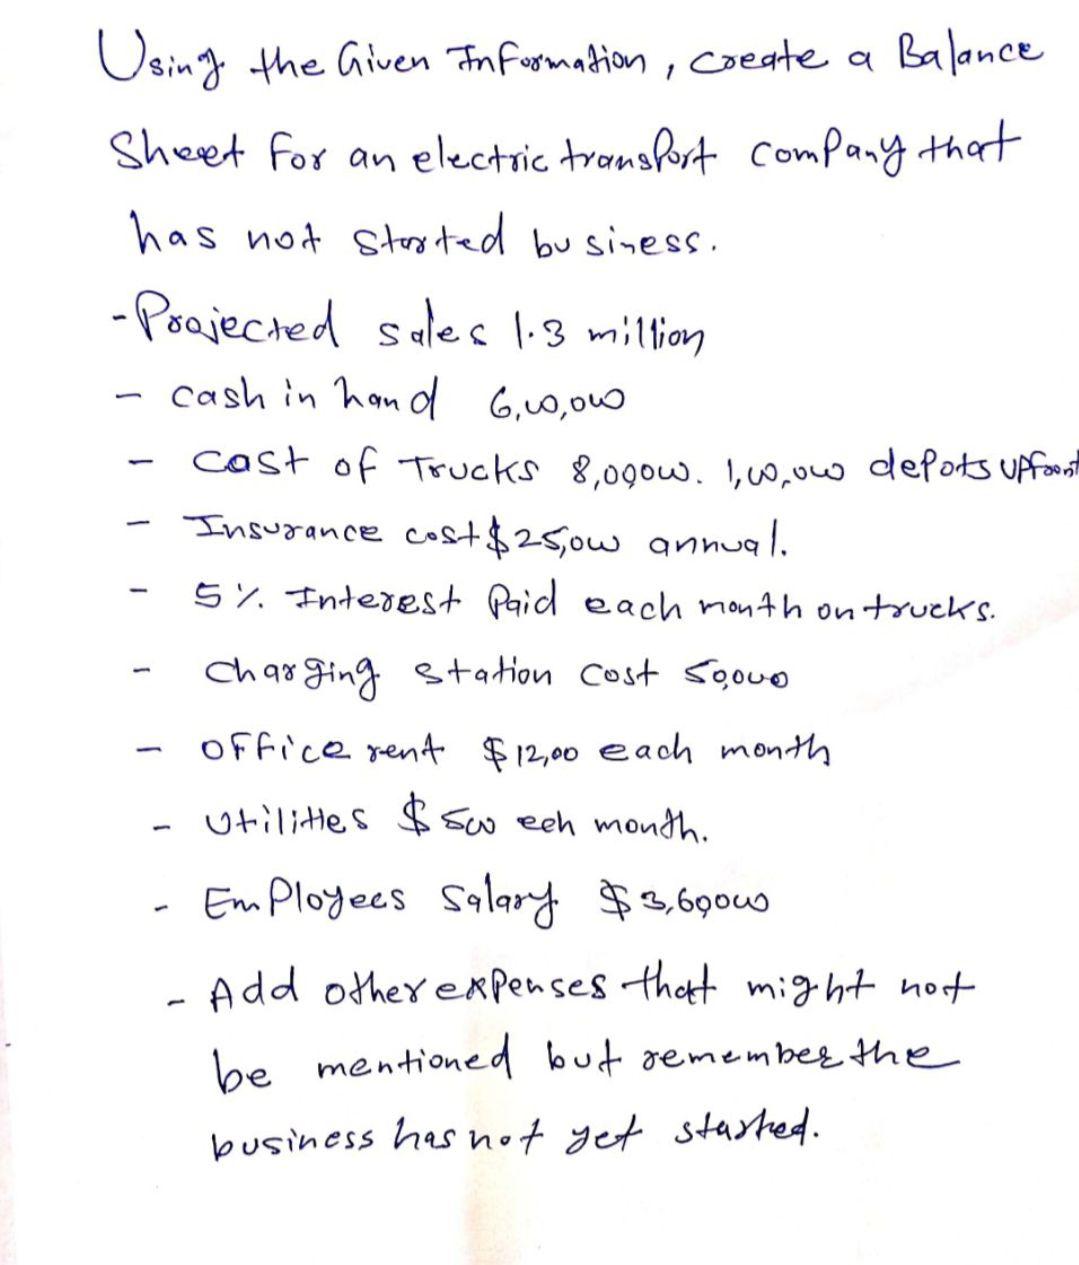 Using the Given Information, create a Balance
Sheet for an electric transport company that
has not started business.
- Projected sales 1.3 million
- cash in hand 6,00,000
- cost of Trucks 8,00000. 1,00,000 depots upfront
- Insurance cost $25,000 annual.
- 5% Interest Paid each month on trucks.
- charging station cost 50,000
- office rent $12,00 each month
- utilities $500 eeh month.
- Employees Salary $3,60000
- Add other expenses that might not
be mentioned but remember the
business has not yet started.